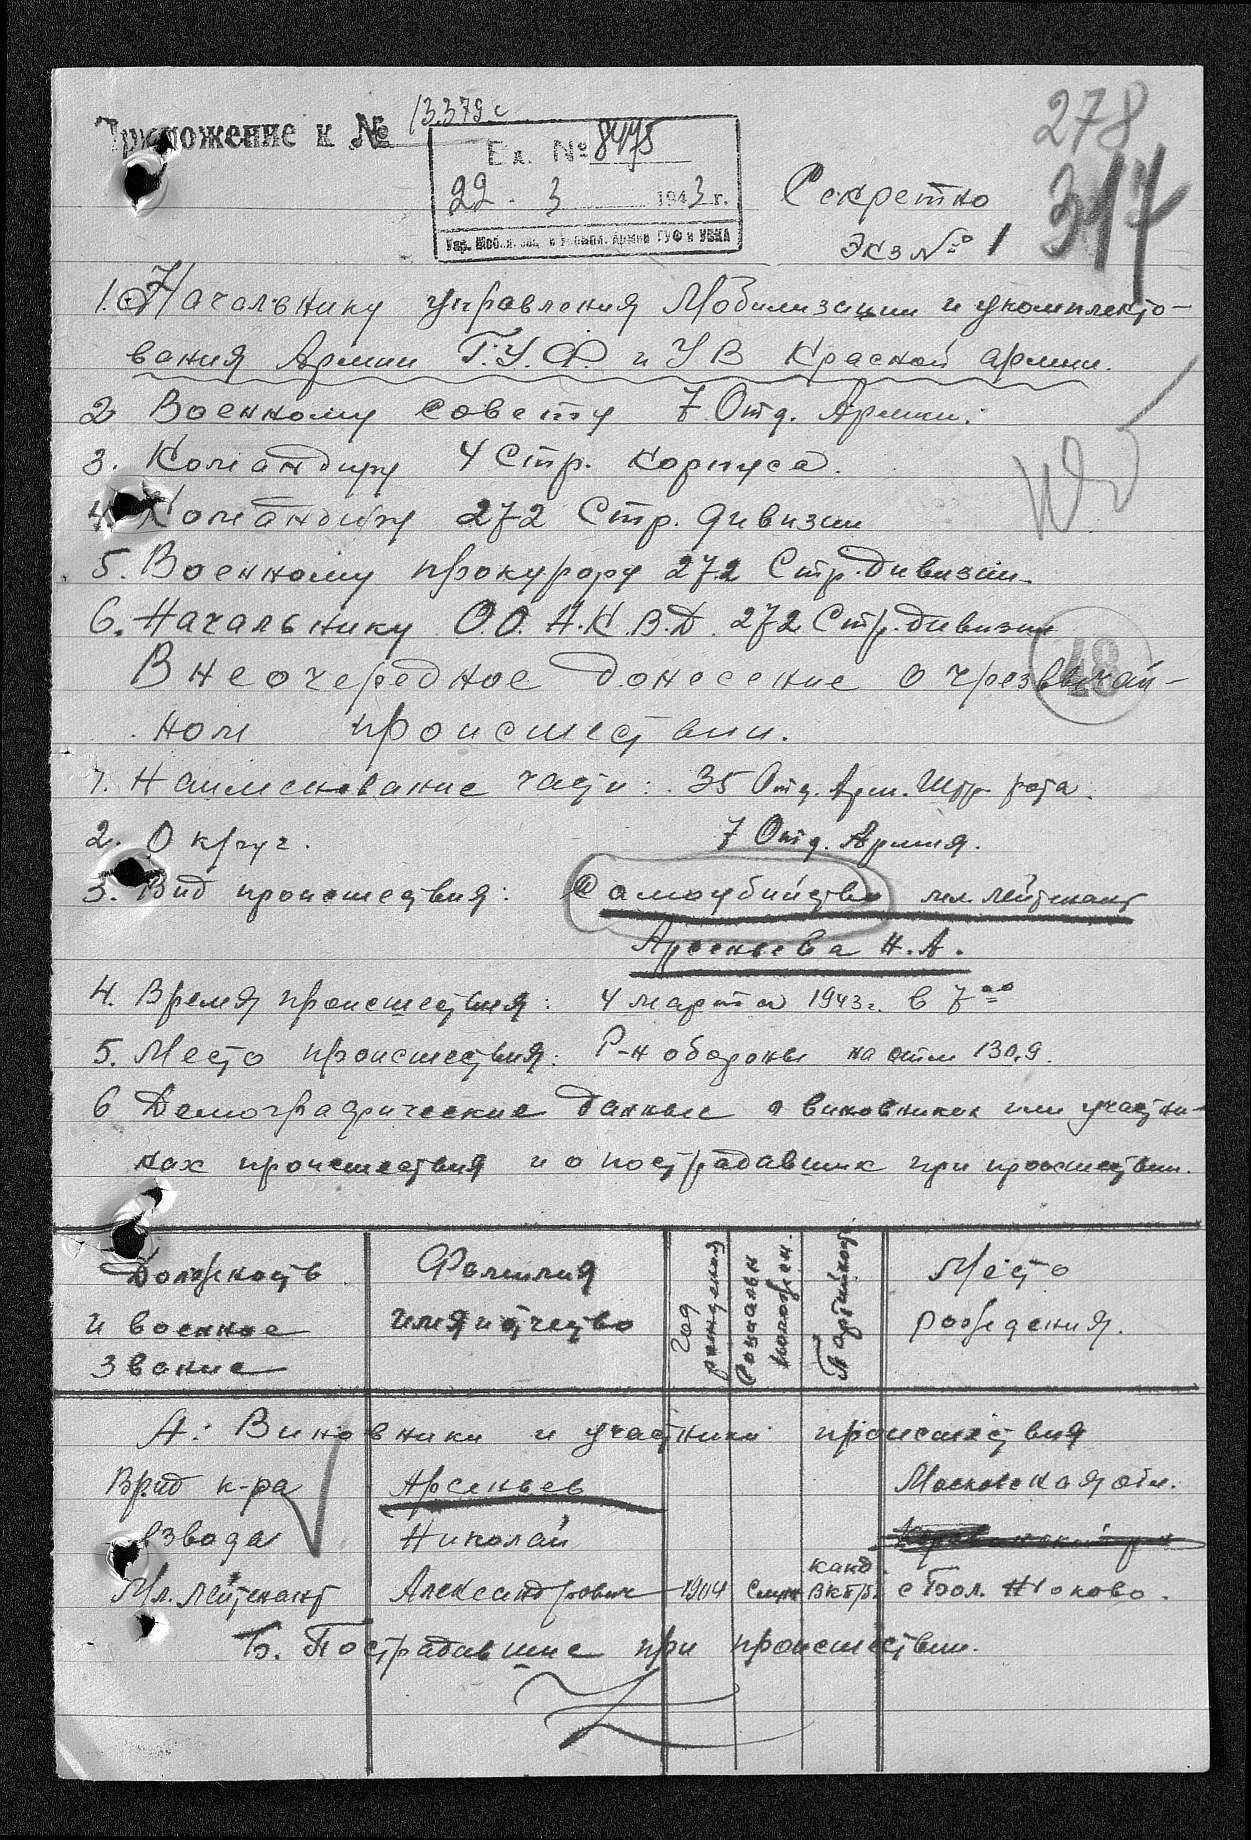 Приложение к № 13379с
278
Вх. № 8475
317
22. 3 1943 г.
Секретно
Экз № 1
1. Начальнику управления Мобилизации и укомплекто-
вания Армии Г.У.Ф. и УВ Красной армии.
2 Военному совету 7 Отд. Армии.
3. Командиру 4 Стр. корпуса.
4. Командиру 272 Стр. дивизии
5. Военному прокурору 272 Стр. Дивизии.
6. Начальнику О.О. Н.К.В.Д. 272 Стр. дивизии
48
Внеочередное донесение о чрезвычай-
ном происшествии.
1. Наименование части: 35 Отд. Арм. Штр. рота.
2. Округ. 7 Отд. Армия.
3. Вид происшествия: Самоубийство мл. лейтенант
Арсеньева Н.А.
4. Время происшествия: 4 марта 1943 г. в 7 00
5. Место происшествия: Р-н обороны на отм 130,9.
6 Демографические данные о виновниках или участни-
ках происшествия и о пострадавших при происшествии.
Должность и военное звание
Фамилия имя и отчество
Год рождения
Социальн положен.
Партийност
Место рождения.
А. Виновники и участники происшествия
Врид к-ра Арсеньев Московская обл.
взвода Николай
канд.
Мл. лейтенант Александрович 1904 Служ ВКП/б. с Бол. Жоково.
Б. Пострадавшие при происшествии.